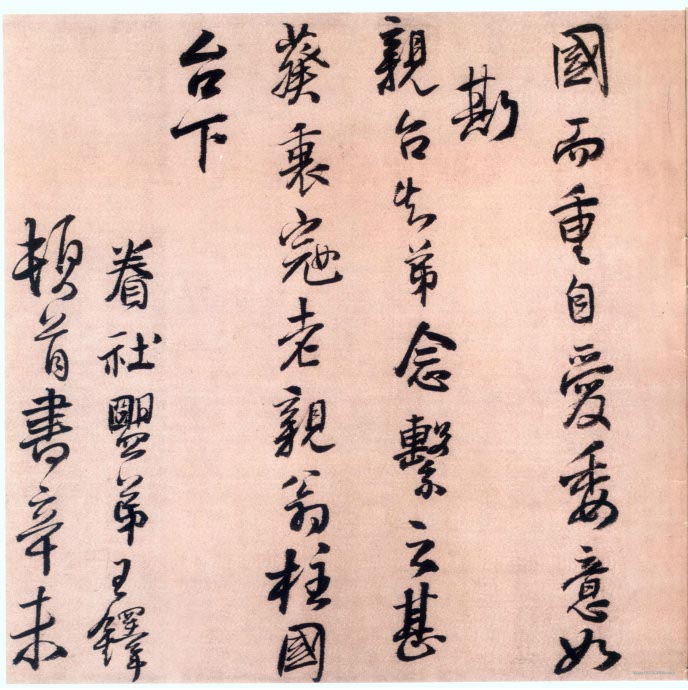 國而重自愛委意如
斯
親台失弟念繫之甚
葵衷寇老親翁柱國
台下
眷社盟弟王鐸
頓首書辛未